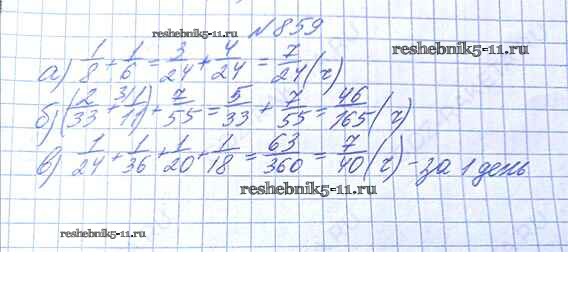 №859
reshebnik5-11.ru reshebnik5-11.ru
а) 1/8 + 1/6 = 3/24 + 4/24 = 7/24 (г)
б) (2/33 + 3/ 1/11) + 7/55 = 5/33 + 7/55 = 46/165 (г)
reshebnik5-11.ru
в) 1/24 + 1/36 + 1/20 + 1/18 = 63/360 = 7/40 (г) - за 1 день
reshebnik5-11.ru
reshebnik5-11.ru